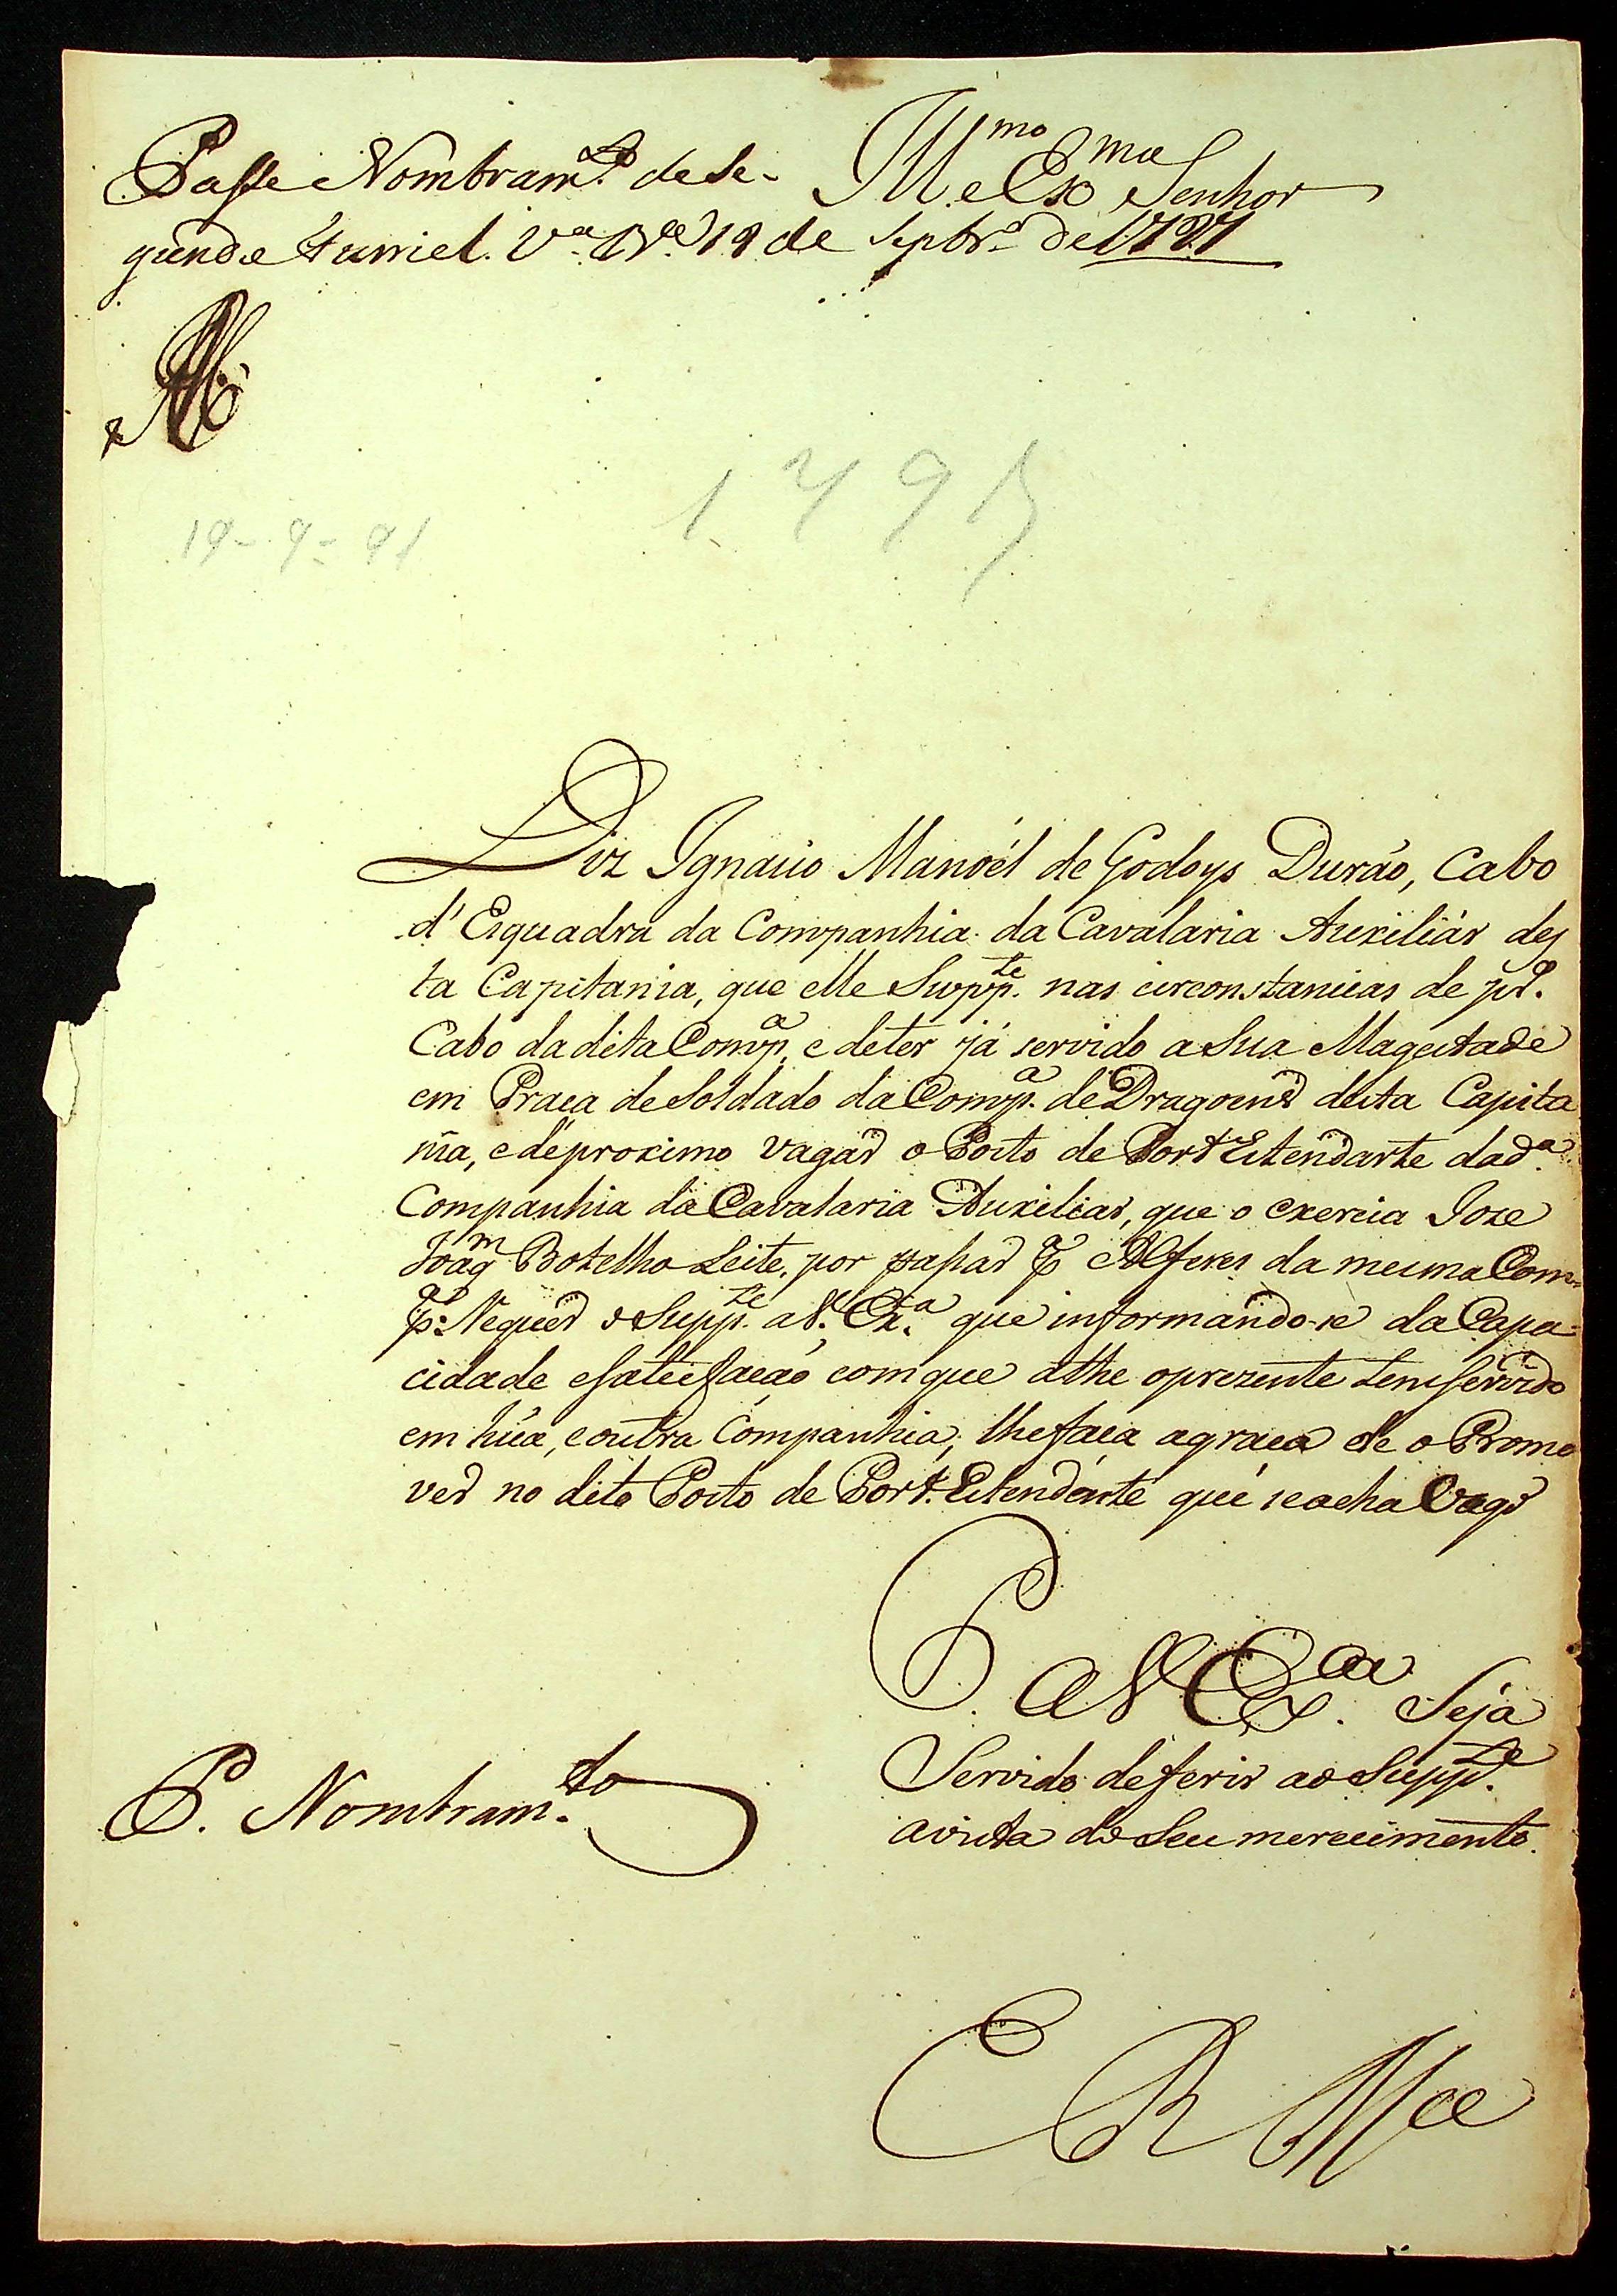 Illmo e Exmo Senhor
Passe Nombramto de Se-
gundo Furriel. Va Ba 19 de Septbro de 1791
1791
19-9-91
Diz Ignacio Manoél de Godoys Durão, Cabo
d'Esquadra da Companhia da Cavalaria Auxiliár des
ta Capitania, que elle Suppte. nas circonstancias de
Cabo da dita Compa, e deter já servido a Sua Magestade
em Praça de Soldado da Compa. de Dragoens desta Capita
nia, e de proximo vagar o Posto de Port'Estendarte da da.
Companhia da Cavalaria Auxiliar, que o exercia Joze
Joaqm Botelho Leite, por passar pa Alferes da mesma Com-
pa: Requer o Suppte. a V. Exa. que informando-se da Capa-
cidade e satisfação com que athe o prezente tem servido
em hũa, e outra Companhia, lhe faça a graça de o Promo
ver no dito Posto de Port.Estendarte que se acha Vago
P. a V Exa. Seja
Servido deferir ao Suppte.
a vista do Seu merecimento.
P. Nombramto.
E R Mce